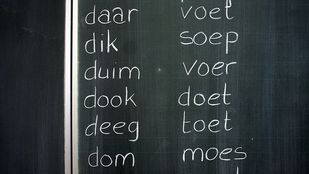 daar voet
dik soep
duim voer
dook doet
deeg toet
dom moes